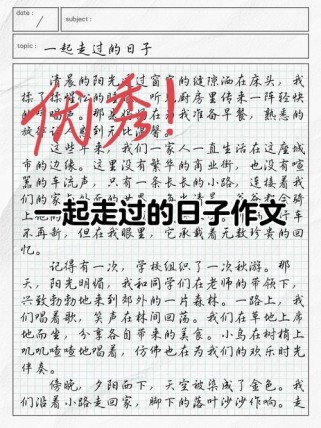 date:
subject:
topic: 一起走过的日子
清晨的阳光透过窗帘的缝隙洒在床头，我
揉了揉惺忪的睡眼，听见厨房里传来一阵轻快
优秀！
这些年来，我们一家人一直生活在这座城
市的边缘。这里没有繁华的商业街，也没有喧
嚣的车流声，只有一条长长的小路，连接着我
一起走过的日子作文
不再新，但在我眼里，它承载着无数珍贵的回
忆。
记得有一次，学校组织了一次秋游。那
天，阳光明媚，我和同学们在老师的带领下，
兴致勃勃地来到郊外的一片森林。一路上，我
们唱着歌，笑声在林间回荡。我们在草地上席
地而坐，分享各自带来的美食。小鸟在树梢上
叽叽喳喳地唱着，仿佛也在为我们的欢乐时光
伴奏。
傍晚，夕阳西下，天空被染成了金色。我
们沿着小路走回家，脚下的落叶沙沙作响。走